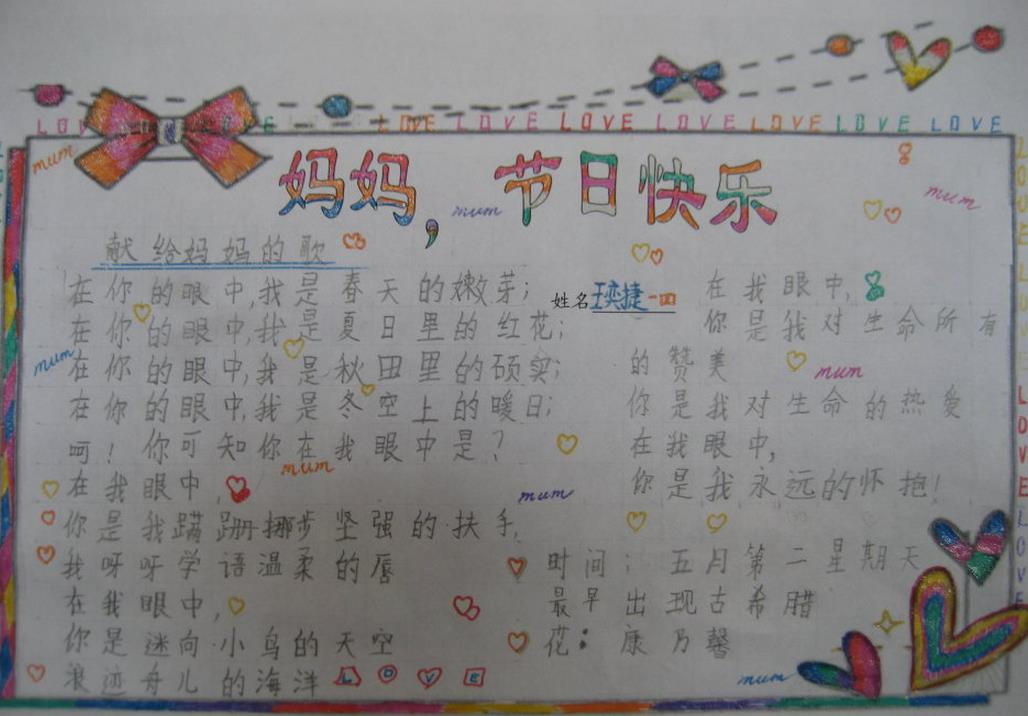 LOVE LOVE LOVE LOVE LOVE LOVE LOVE LOVE
妈妈，节日快乐
mum
mum
mum
献给妈妈的歌
在你的眼中,我是春天的嫩芽；
在你的眼中,我是夏日里的红花；
在你的眼中,我是秋田里的硕实；
在你的眼中,我是冬空上的暖日；
呵！你可知你在我眼中是？
在我眼中,
你是我蹒跚挪步坚强的扶手,
我呀呀学语温柔的唇
在我眼中,
你是迷向小鸟的天空
浪迹舟儿的海洋
LOVE
姓名 王奕捷 一四
在我眼中,
你是我对生命所有
的赞美
你是我对生命的热爱
在我眼中,
你是我永远的怀抱！
mum
mum
mum
mum
时间：五月第二星期天
最早出现古希腊
花：康乃馨
mum
LOVE
LOVE